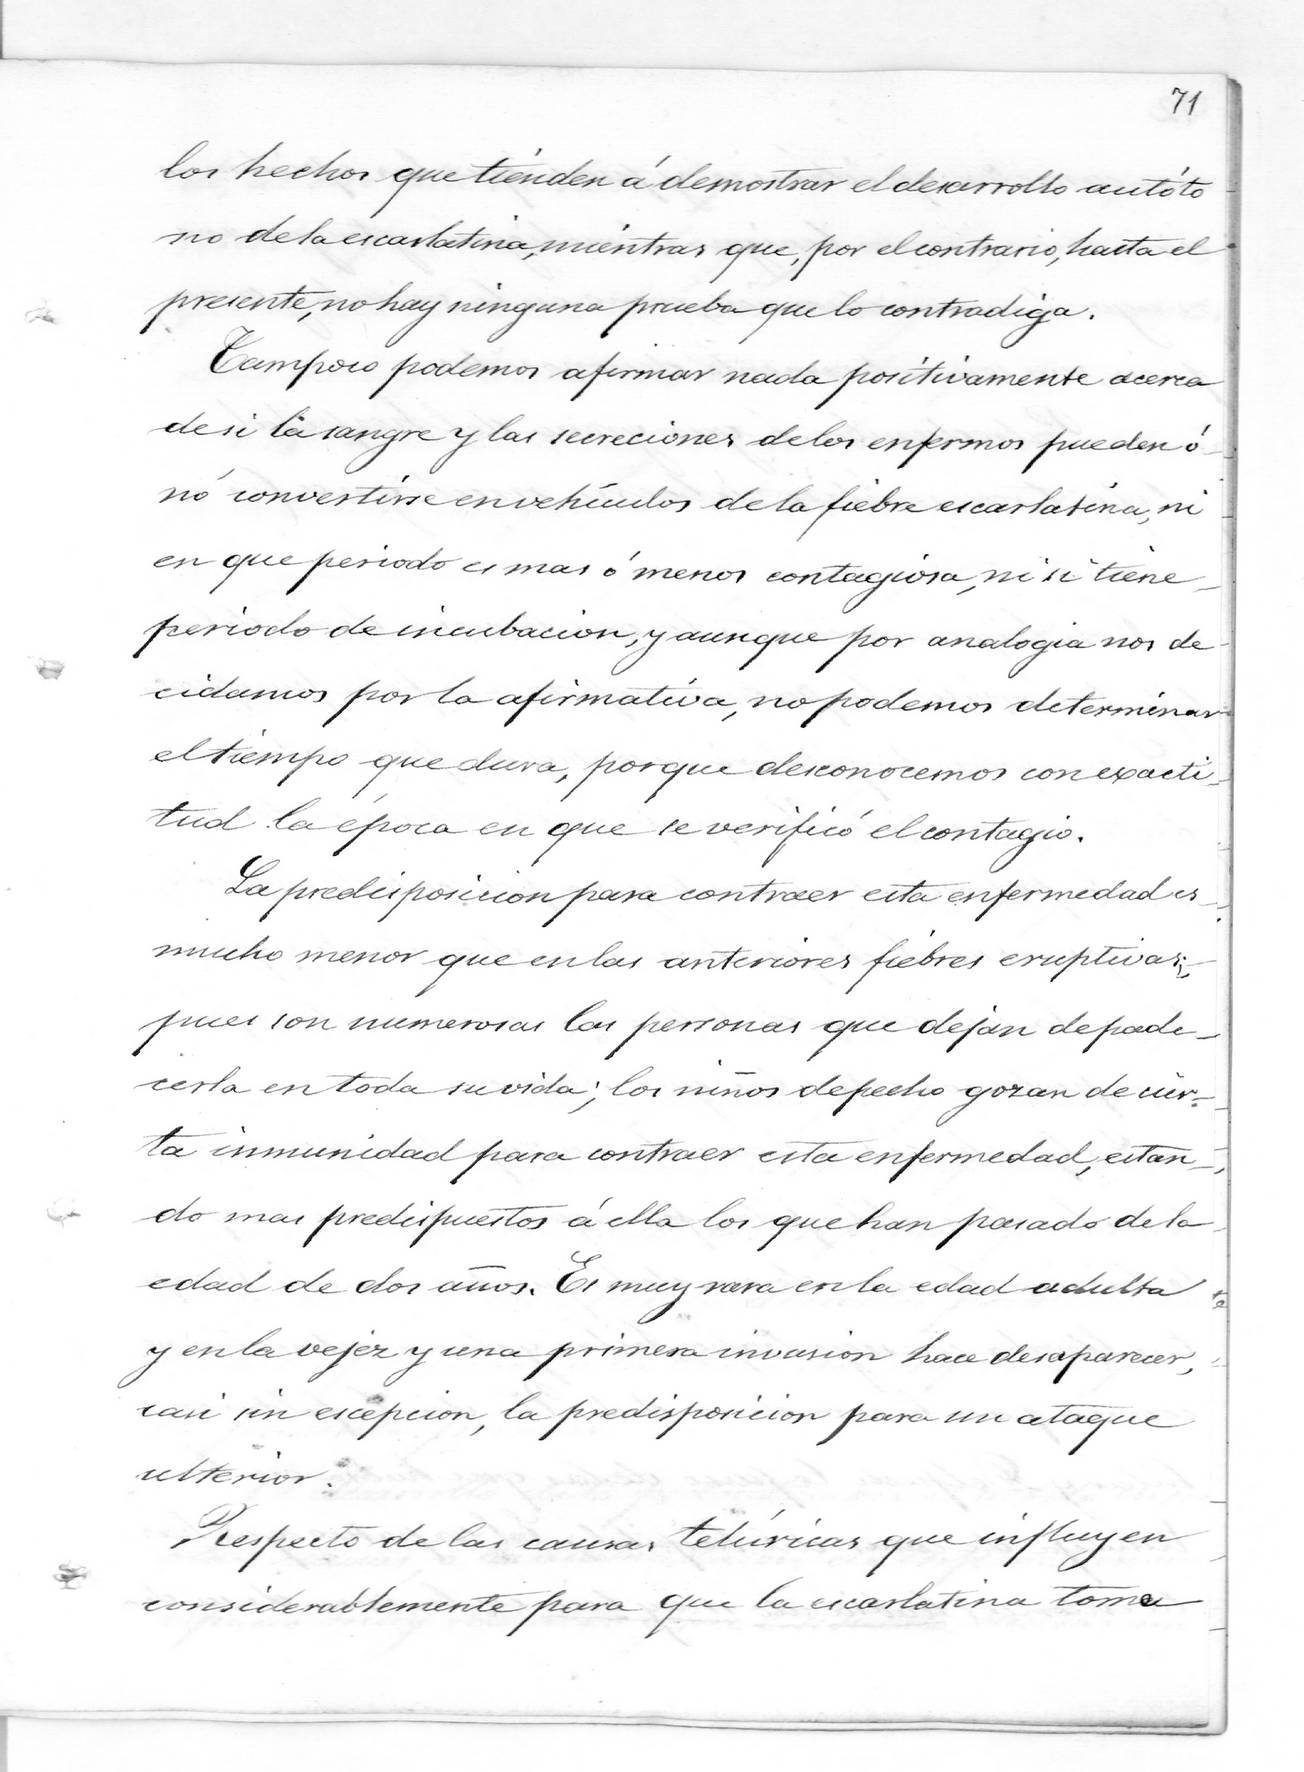 71
los hechos que tienden á demostrar el desarrollo autóto
no de la escarlatina, mientras que, por el contrario, hasta el
presente, no hay ninguna prueba que lo contradiga.
Tampoco podemos afirmar nada positivamente acerca
de si la sangre y las secreciones de los enfermos pueden ó
nó convertirse en vehículos de la fiebre escarlatina, ni
en que periodo es mas ó menos contagiosa, ni si tiene
periodo de incubacion, y aunque por analogia nos de
cidamos por la afirmativa, no podemos determinar
el tiempo que dura, porque desconocemos con exacti-
tud la época en que se verificó el contagio.
La predisposicion para contraer esta enfermedad es
mucho menor que en las anteriores fiebres eruptivas;
pues son numerosas las personas que dejan de pade-
cerla en toda su vida; los niños de pecho gozan de cier-
ta inmunidad para contraer esta enfermedad, estan-
do mas predispuestos á ella los que han pasado de la
edad de dos años. Es muy rara en la edad adulta
y en la vejez y una primera invasion hace desaparecer,
casi sin escepcion, la predisposicion para un ataque
ulterior.
Respecto de las causas telúricas que influyen
considerablemente para que la escarlatina tome